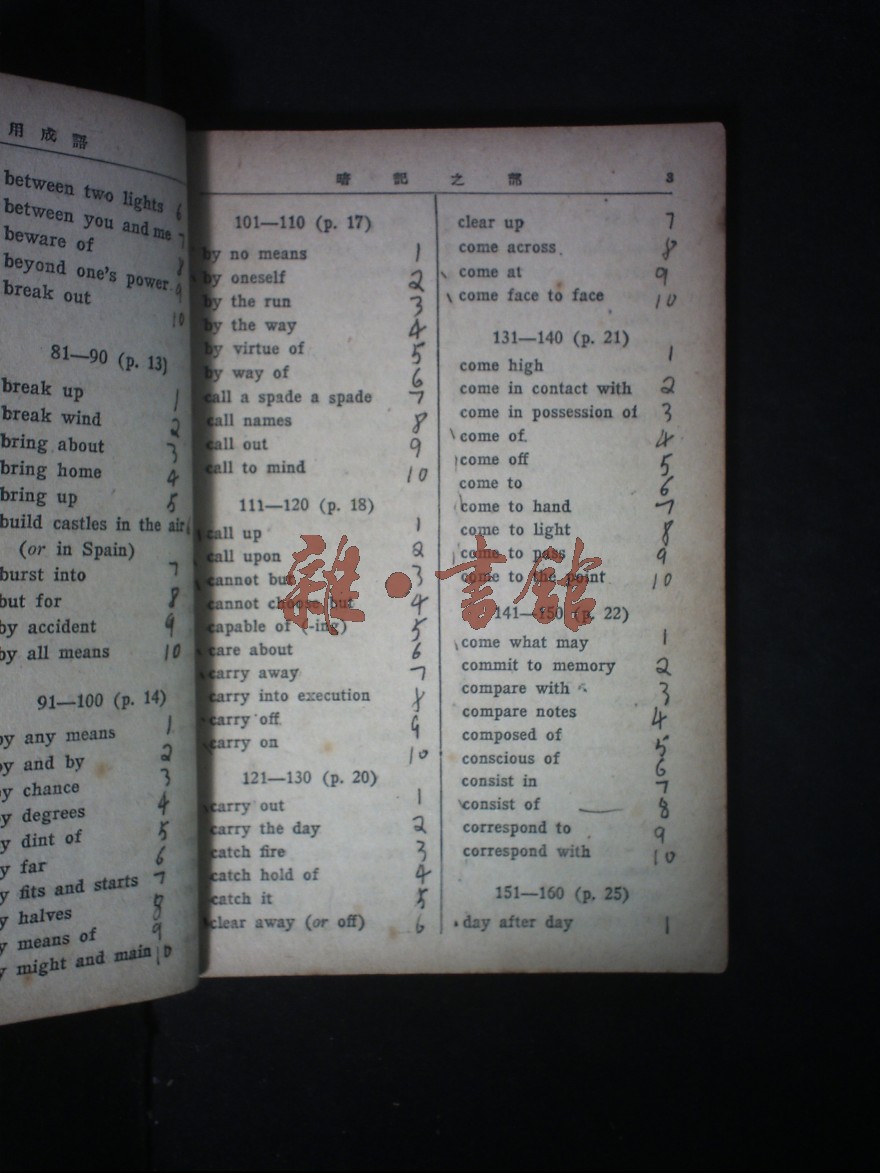 用成語
between two lights 6
between you and me 7
beware of 8
beyond one's power 9
break out 10
81—90 (p. 13)
break up 1
break wind 2
bring about 3
bring home 4
bring up 5
build castles in the air 6
(or in Spain)
burst into 7
but for 8
by accident 9
by all means 10
91—100 (p. 14)
by any means 1
by and by 2
by chance 3
by degrees 4
by dint of 5
by far 6
by fits and starts 7
by halves 8
by means of 9
by might and main 10
暗記之部 3
101—110 (p. 17)
by no means 1
by oneself 2
by the run 3
by the way 4
by virtue of 5
by way of 6
call a spade a spade 7
call names 8
call out 9
call to mind 10
111—120 (p. 18)
call up 1
call upon 2
cannot but 3
cannot choose but 4
capable of (-ing) 5
care about 6
carry away 7
carry into execution 8
carry off 9
carry on 10
121—130 (p. 20)
carry out 1
carry the day 2
catch fire 3
catch hold of 4
catch it 5
clear away (or off) 6
clear up 7
come across 8
come at 9
come face to face 10
131—140 (p. 21)
come high 1
come in contact with 2
come in possession of 3
come of 4
come off 5
come to 6
come to hand 7
come to light 8
come to pass 9
come to the point 10
141—150 (p. 22)
come what may 1
commit to memory 2
compare with 3
compare notes 4
composed of 5
conscious of 6
consist in 7
consist of 8
correspond to 9
correspond with 10
151—160 (p. 25)
day after day 1
雜·書館